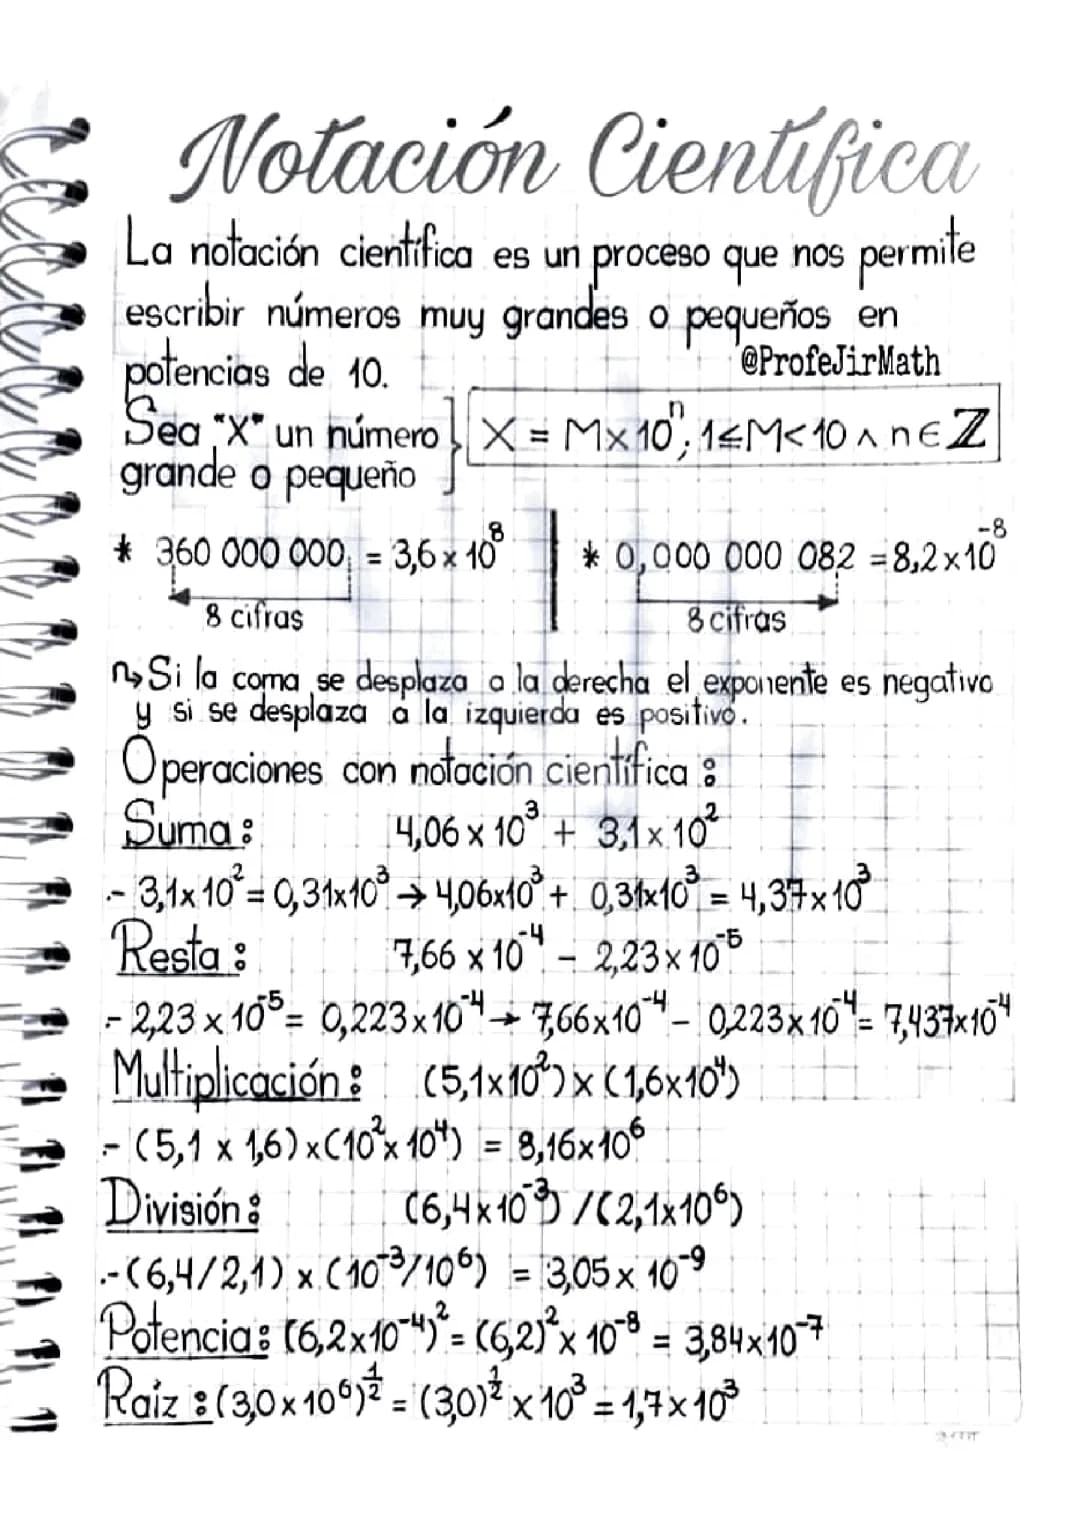 Notación Científica
La notación científica es un proceso que nos permite
escribir números muy grandes o pequeños en
potencias de 10.
@ProfeJirMath
Sea "X" un número
grande o pequeño
X = M×10ⁿ; 1≤M<10 ∧ n∈ℤ
* 360 000 000, = 3,6 × 10⁸
8 cifras
* 0,000 000 082 = 8,2×10⁻⁸
8 cifras
↝ Si la coma se desplaza a la derecha el exponente es negativo
y si se desplaza a la izquierda es positivo.
Operaciones con notación científica:
Suma: 4,06 × 10³ + 3,1 × 10²
.- 3,1×10² = 0,31×10³ → 4,06×10³ + 0,31×10³ = 4,37×10³
Resta: 7,66 × 10⁻⁴ - 2,23 × 10⁻⁵
.- 2,23 × 10⁻⁵ = 0,223×10⁻⁴ → 7,66×10⁻⁴ - 0,223×10⁻⁴ = 7,437×10⁻⁴
Multiplicación: (5,1×10²) × (1,6×10⁴)
.- (5,1 × 1,6) × (10² × 10⁴) = 8,16×10⁶
División: (6,4×10⁻³) / (2,1×10⁶)
.- (6,4/2,1) × (10⁻³/10⁶) = 3,05 × 10⁻⁹
Potencia: (6,2×10⁻⁴)² = (6,2)² × 10⁻⁸ = 3,84×10⁻⁷
Raiz: (3,0×10⁶)^½ = (3,0)^½ × 10³ = 1,7×10³